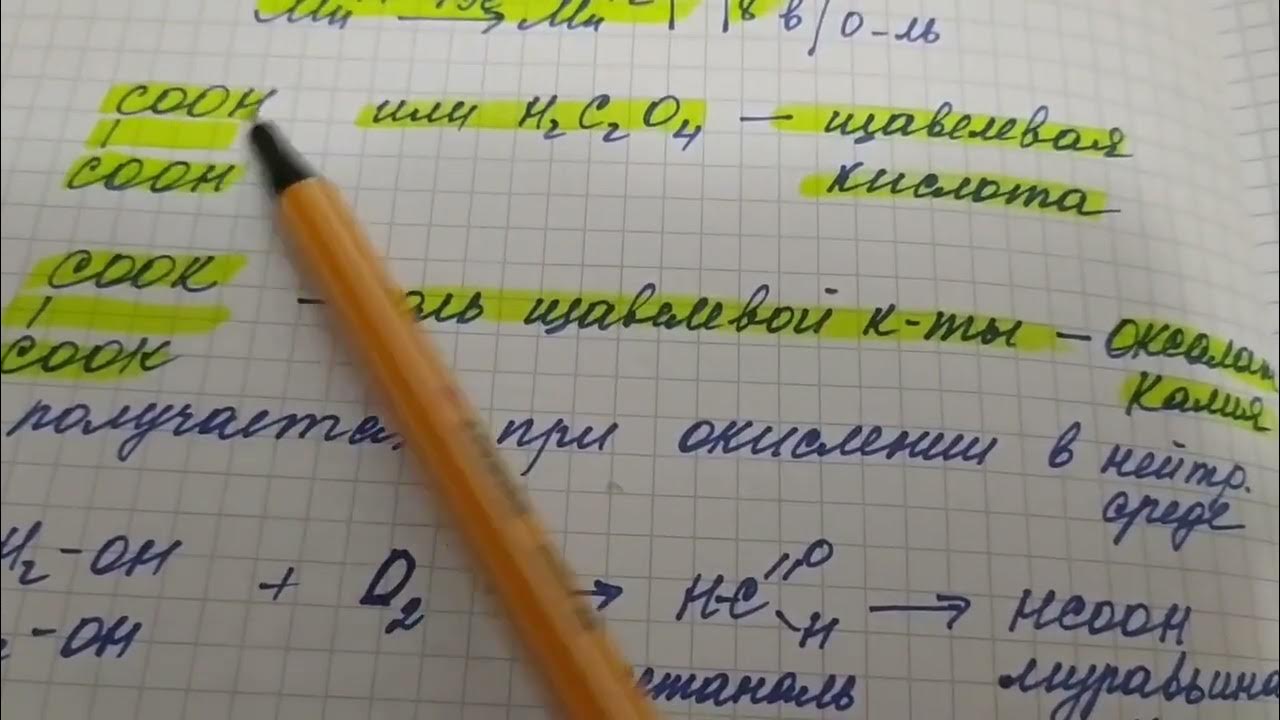 COOH или H₂C₂O₄ — щавелевая
| кислота
COOH
COOK
| — оль щавелевой к-ты — оксалат
COOK калия
получается при окислении в нейтр.
среде
H₂-OH + O₂ → H-C=O → HCOOH
-OH -H
этаналь муравьина